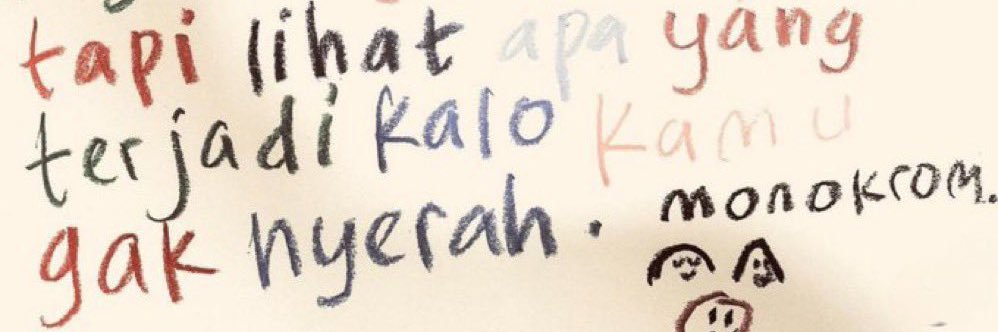 tapi lihat apa yang
terjadi kalo kamu
gak nyerah.
monokrom.